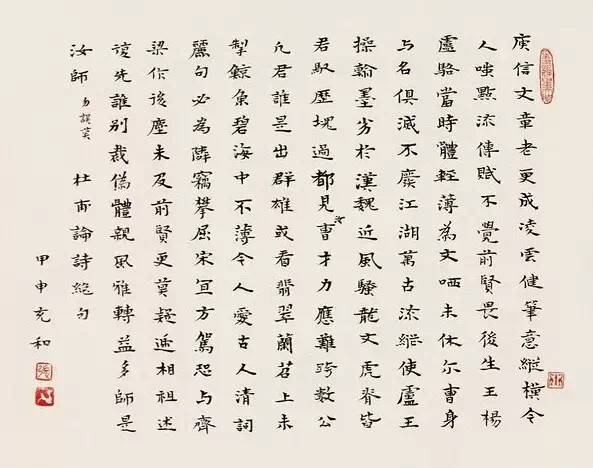 庾信文章老更成凌雲健筆意縱橫今
人嗤點流傳賦不覺前賢畏後生王楊
盧駱當時體輕薄為文哂未休尔曹身
与名俱滅不廢江湖萬古流縱使盧王
操翰墨劣於漢魏近風騷龍文虎脊皆
君馭歷塊過都見曹才力應難跨數公
凡君誰是出群雄或看翡翠蘭苕上未
掣鯨魚碧海中不薄今人愛古人清詞
麗句必為隣竊攀屈宋宜方駕恐与齊
梁作後塵未及前賢更莫疑遞相祖述
復先誰別裁偽體親風雅轉益多師是
汝師 勿誤莫 杜甫論詩絕句
甲申充和
張